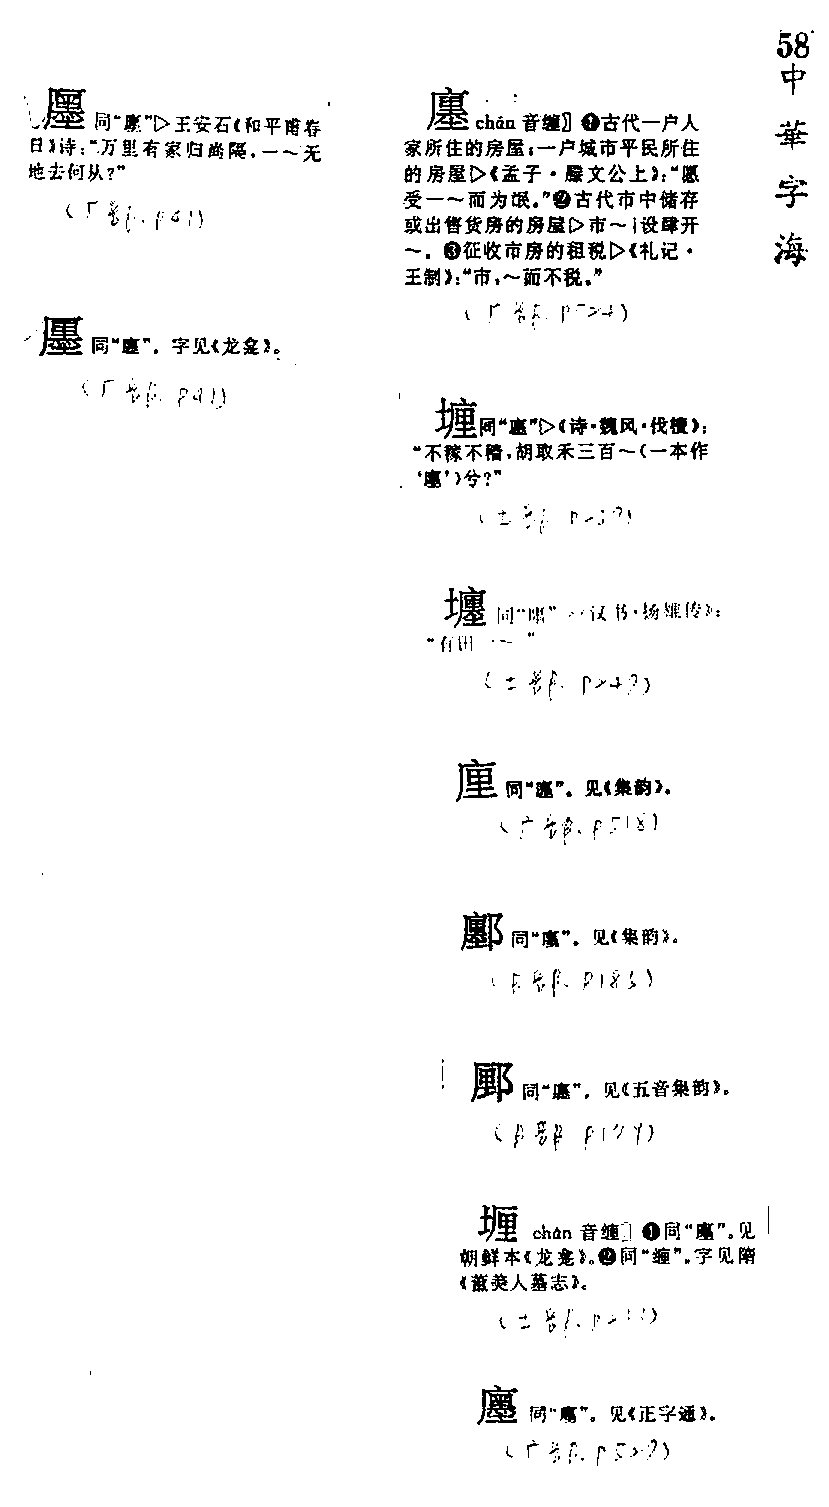 58
中華字海
廛 chán 音缠〗❶古代一户人
家所住的房屋;一户城市平民所住
的房屋▷《孟子·滕文公上》:“愿
受一～而为氓。”❷古代市中储存
或出售货房的房屋▷市～|设肆开
～。❸征收市房的租税▷《礼记·
王制》:“市,～而不税。”
(广部. P524)
堙同“廛”▷《诗·魏风·伐檀》:
“不稼不穑,胡取禾三百～(一本作
‘廛’)兮?”
(土部 P239)
同“廛” 汉书·扬雄传》:
“有田一～”
(土部. P249)
同“廛”。见《集韵》。
(广部. P518)
同“廛”。见《集韵》。
(阝部. P183)
同“廛”。见《五音集韵》。
(阝部 P179)
chán 音缠〗❶同“廛”。见
朝鲜本《龙龛》。❷同“缠”。字见隋
《董美人墓志》。
(土部. P233)
同“廛”。见《正字通》。
(广部. P527)
同“廛”▷王安石《和平甫春
日》诗:“万里有家归尚隔,一～无
地去何从?”
(厂部. P41)
同“廛”。字见《龙龛》。
(厂部. P41)